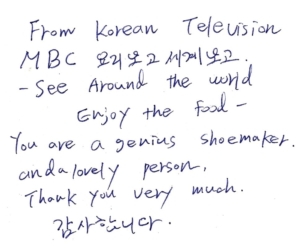 From Korean Television
MBC 요리보고 세계보고.
- See Around the world
Enjoy the Food -
You are a genius shoemaker.
and a lovely person,
Thank you very much.
감사합니다.